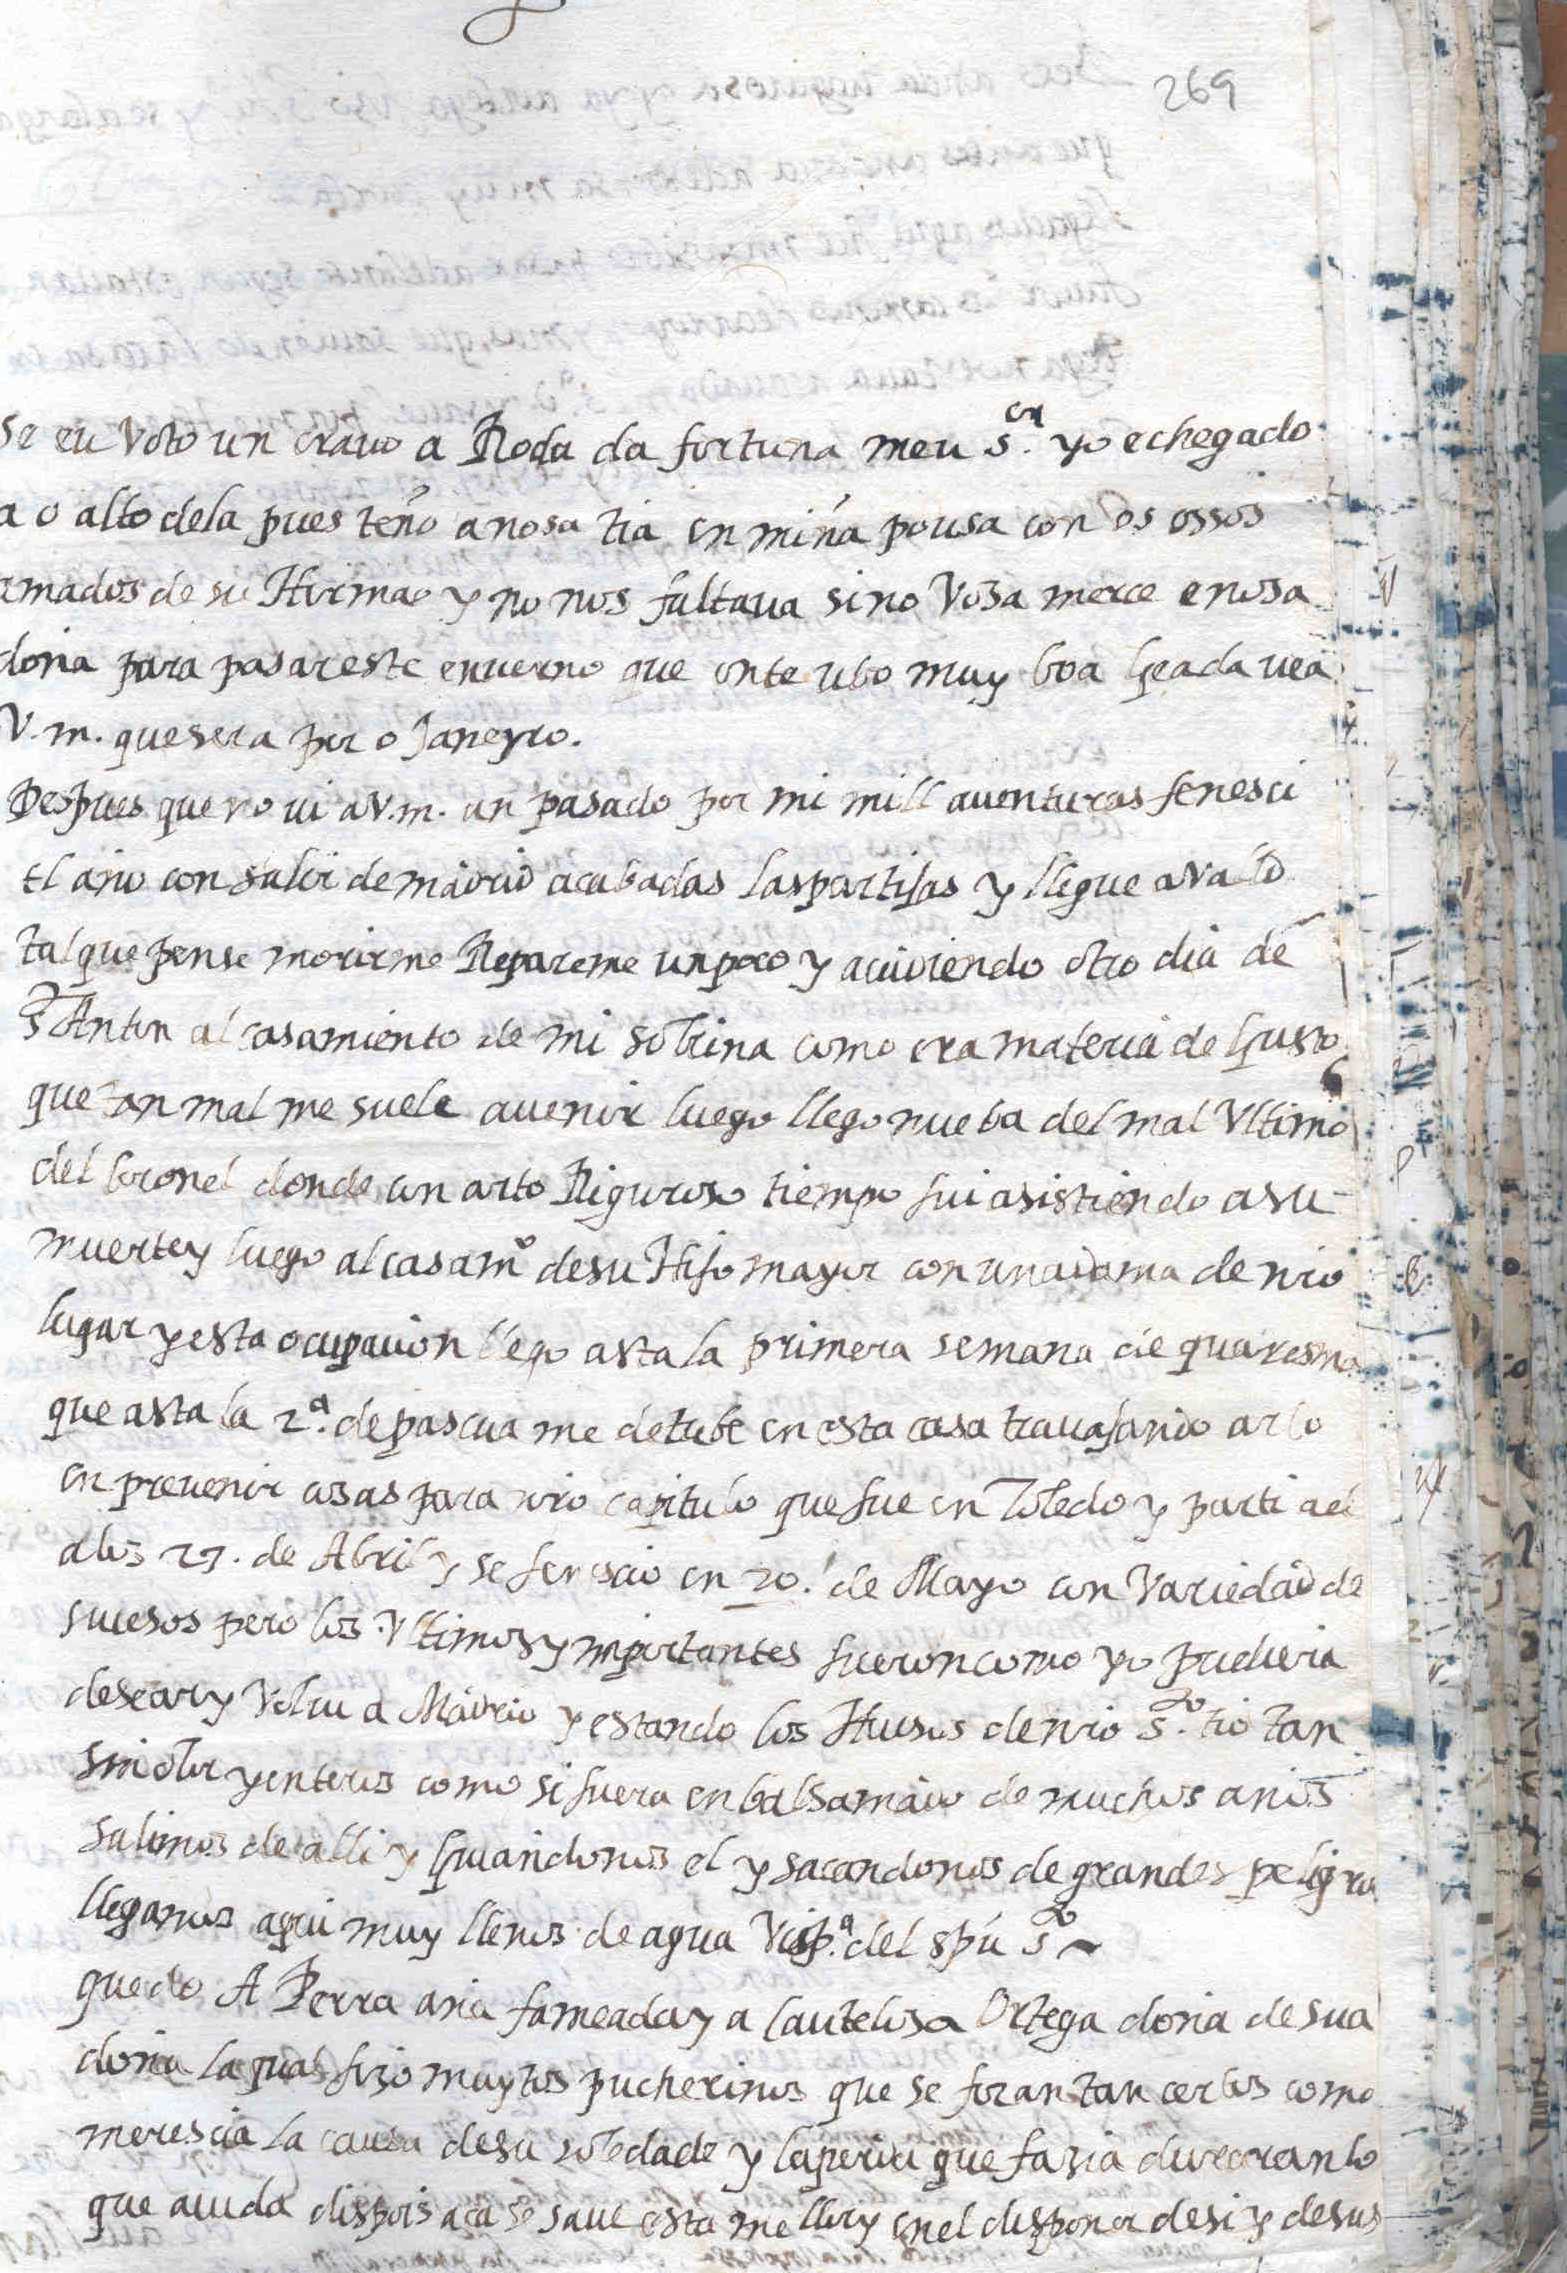 269
se eu Voto un cravo a Roda da fortuna meu s.or yo e chegado
a o alto dela pues teño a nosa tia en miña pousa con os ossos
amados de su Hirmao y no nos faltaua sino Vosa merce e nosa
dona para pasar este enuerno que onte ubo muy boa geada vea
V.m. que sera por o Janeyro.
Despues que no vi a V.m. an pasado por mi mill auenturas fenesci
el año con salir de madrid acabadas las partijas y llegue a Vallid
tal que pense morirme Repareme un poco y acudiendo otro dia de
S Anton al casamiento de mi sobrina como era materia de gusto
que tan mal me suele auenir luego llego nueba del mal Vltimo
del coronel donde con arto Riguroso tiempo fui asistiendo a su
muerte y luego al casamo de su Hijo mayor con una dama de nro
lugar y esta ocupacion llego asta la primera semana de quaresma
que asta la 2.a de pascua me detube en esta casa trauajando arto
en preuenir cosas para nro capitulo que fue en Toledo y parti a el
a los 27. de Abril y se fenescio en 20. de Mayo con Variedad de
sucesos pero los Vltimos y mportantes fueron como yo pudiera
desear y Volui a Madrid y estando los Huesos de nro s.to tio tan
sin olor y enteros como si fuera enbalsamado de muchos años
salimos de alli y guiandonos el y sacandonos de grandes peligros
llegamos aqui muy llenos de agua Visp.a del spu s.to
quedo A Perra ana fameada y a Cautelosa Ortega dona de sua
dona la qual fizo muytos pucherinos que se foran tan certos como
merescia la causa de su soledade y la perda que fazia duraran lo
que a vida dispois aca se saue esta mellor y en el disponer de si y de sus